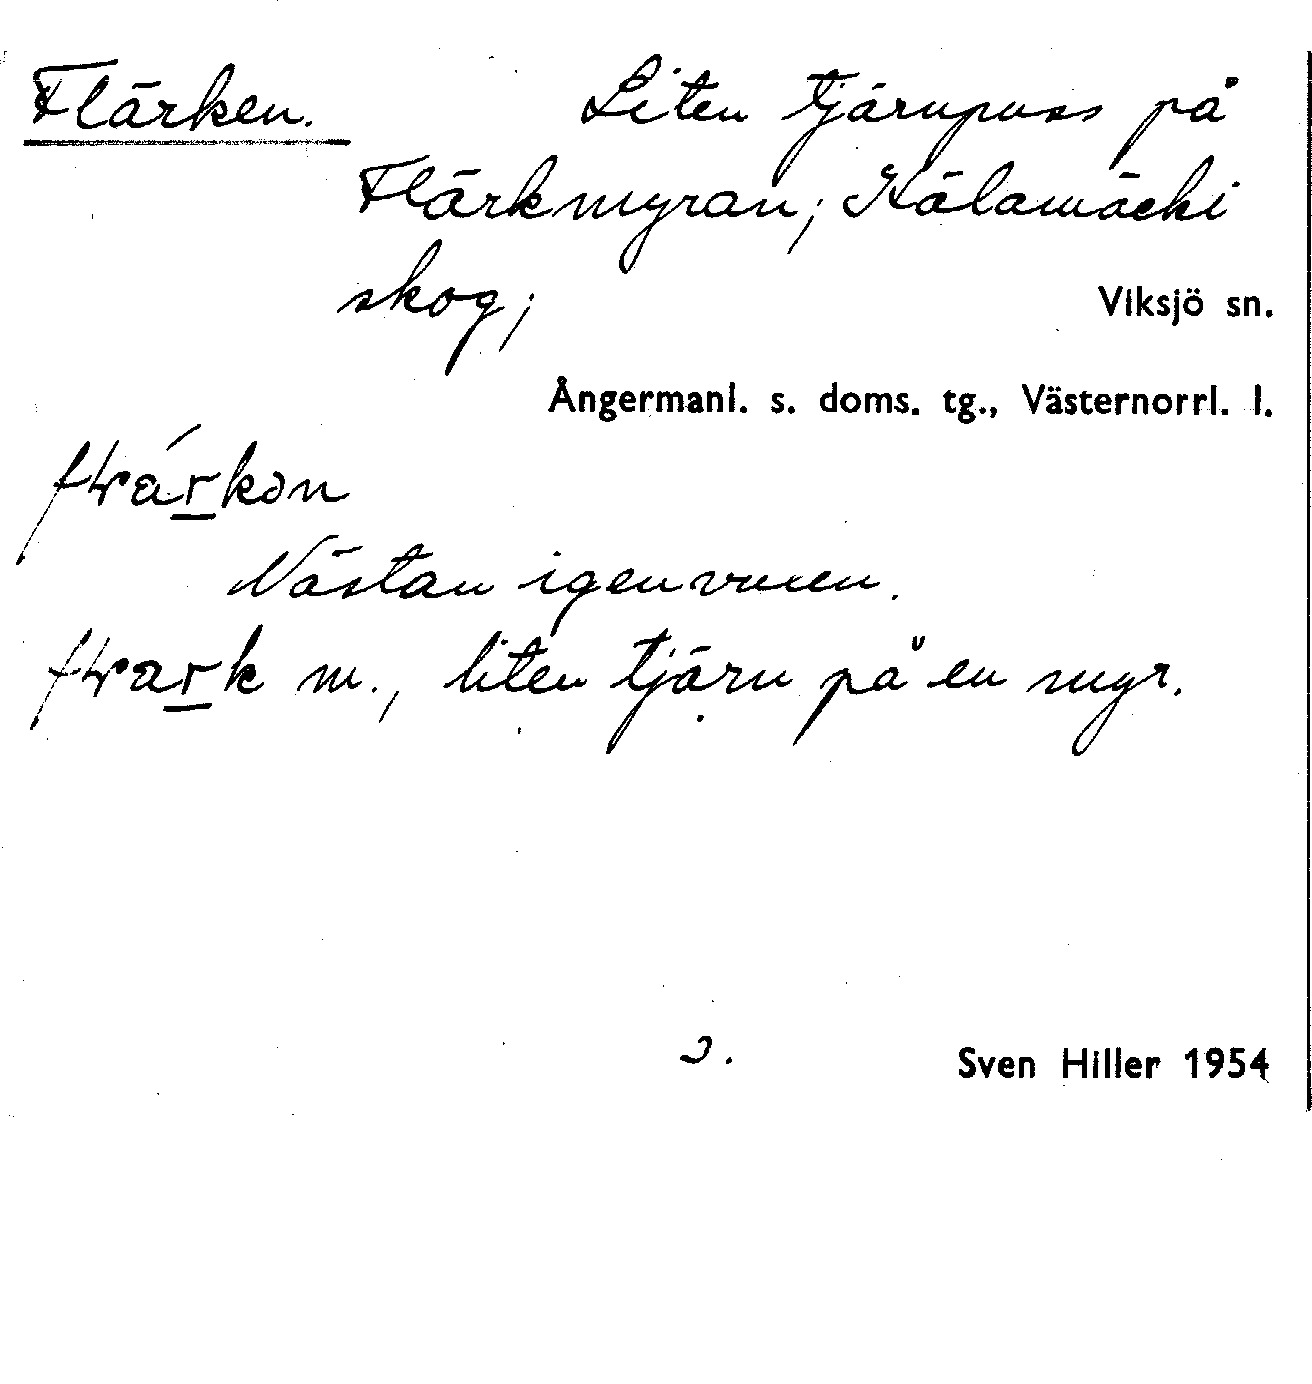 Flärken. Liten tjärnpuss på
Flärkmyran; Kälamäcki
skog;
Viksjö sn.
Ångermanl. s. doms. tg., Västernorrl. l.
Nästan igenvuxen.
m., liten tjärn på en myr.
Sven Hiller 1954